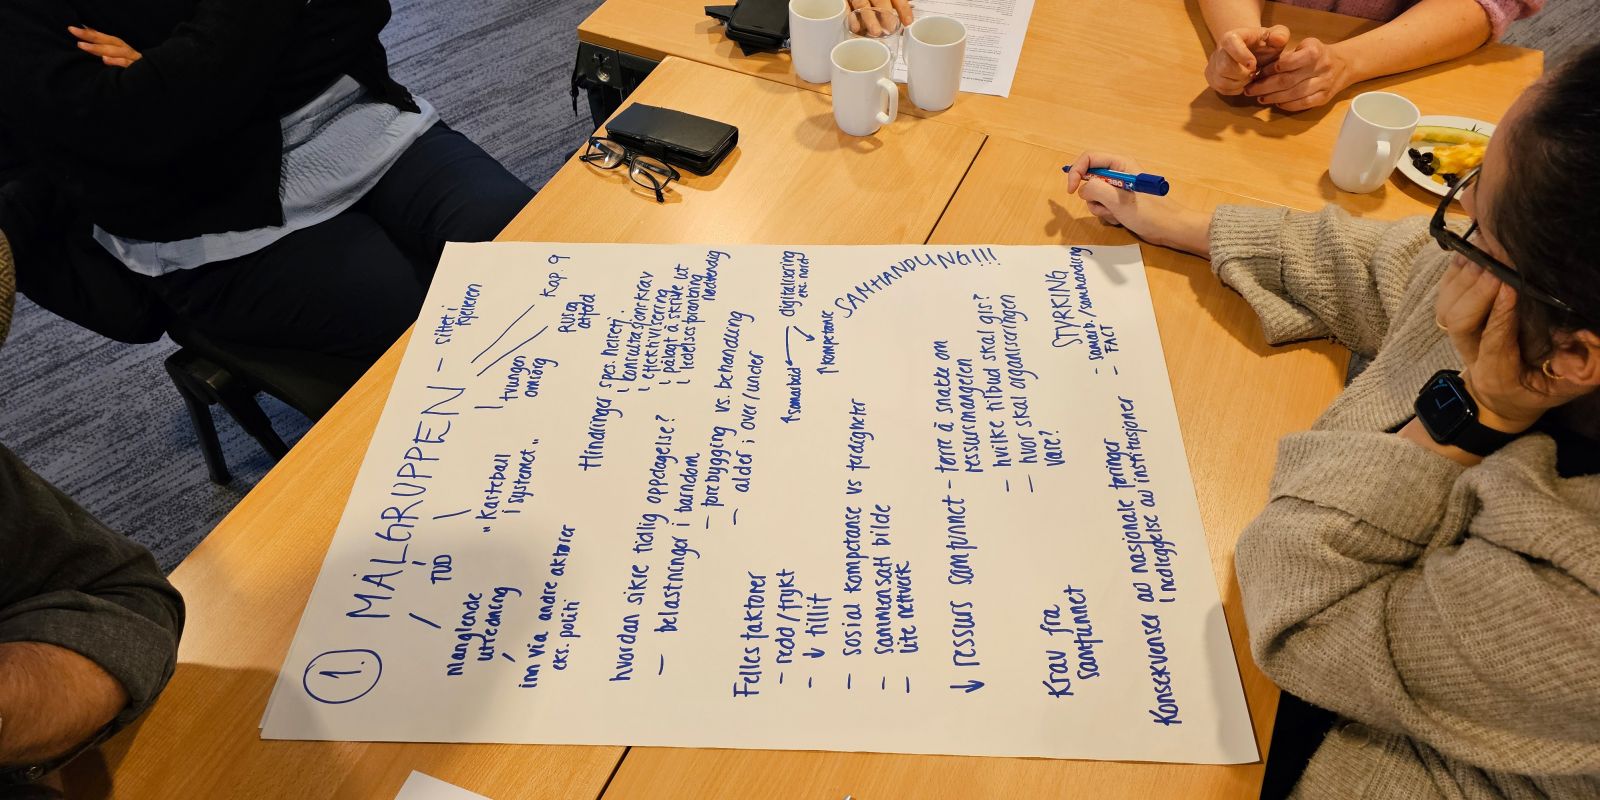 1. MÅLGRUPPEN - sittet i
kjelleren
Kap. 9
TUD
tvungen
omsorg
RUS og
atferd
manglende
utredning
"Kasteball
i systemet"
inn via andre aktører
eks. politi
Hindringer spes. helsetj.
konsultasjonskrav
effektivisering
pålagt å skrive ut
ledelsesforankring
nødvendig
hvordan sikre tidlig oppdagelse?
- belastninger i barndom
- forebygging vs. behandling
- alder i over/under
Felles faktorer
- redd/frykt
- ↓ tillit
- sosial kompetanse vs ferdigheter
- sammensatt bilde
- lite nettverk
↑samarbeid
digitalisering
eks. nord
↑kompetanse
SAMHANDLING!!!
↓ ressurs samfunnet - tørre å snakke om
ressursmangelen
- hvilke tilbud skal gis?
- hvor skal organiseringen
være?
Krav fra
samfunnet
STYRING
- samarb./samhandling
- FACT
Konsekvenser av nasjonale føringer
nedleggelse av institusjoner
380